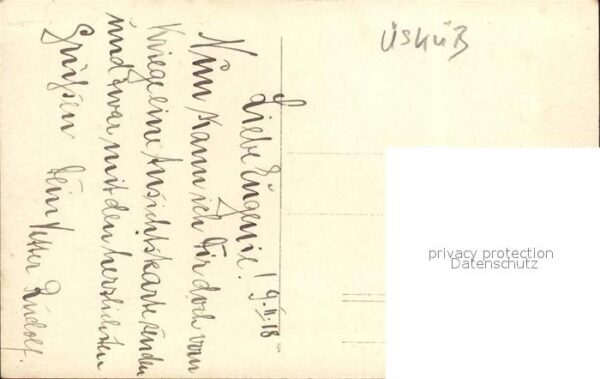 ÜSKÜB
9.II.18
Liebe Eugenie!
Nun kann ich Dir doch vom
Kriege eine Ansichtskarte senden
und zwar mit den herzlichsten
Grüßen Dein Vetter Rudolf.
privacy protection
Datenschutz